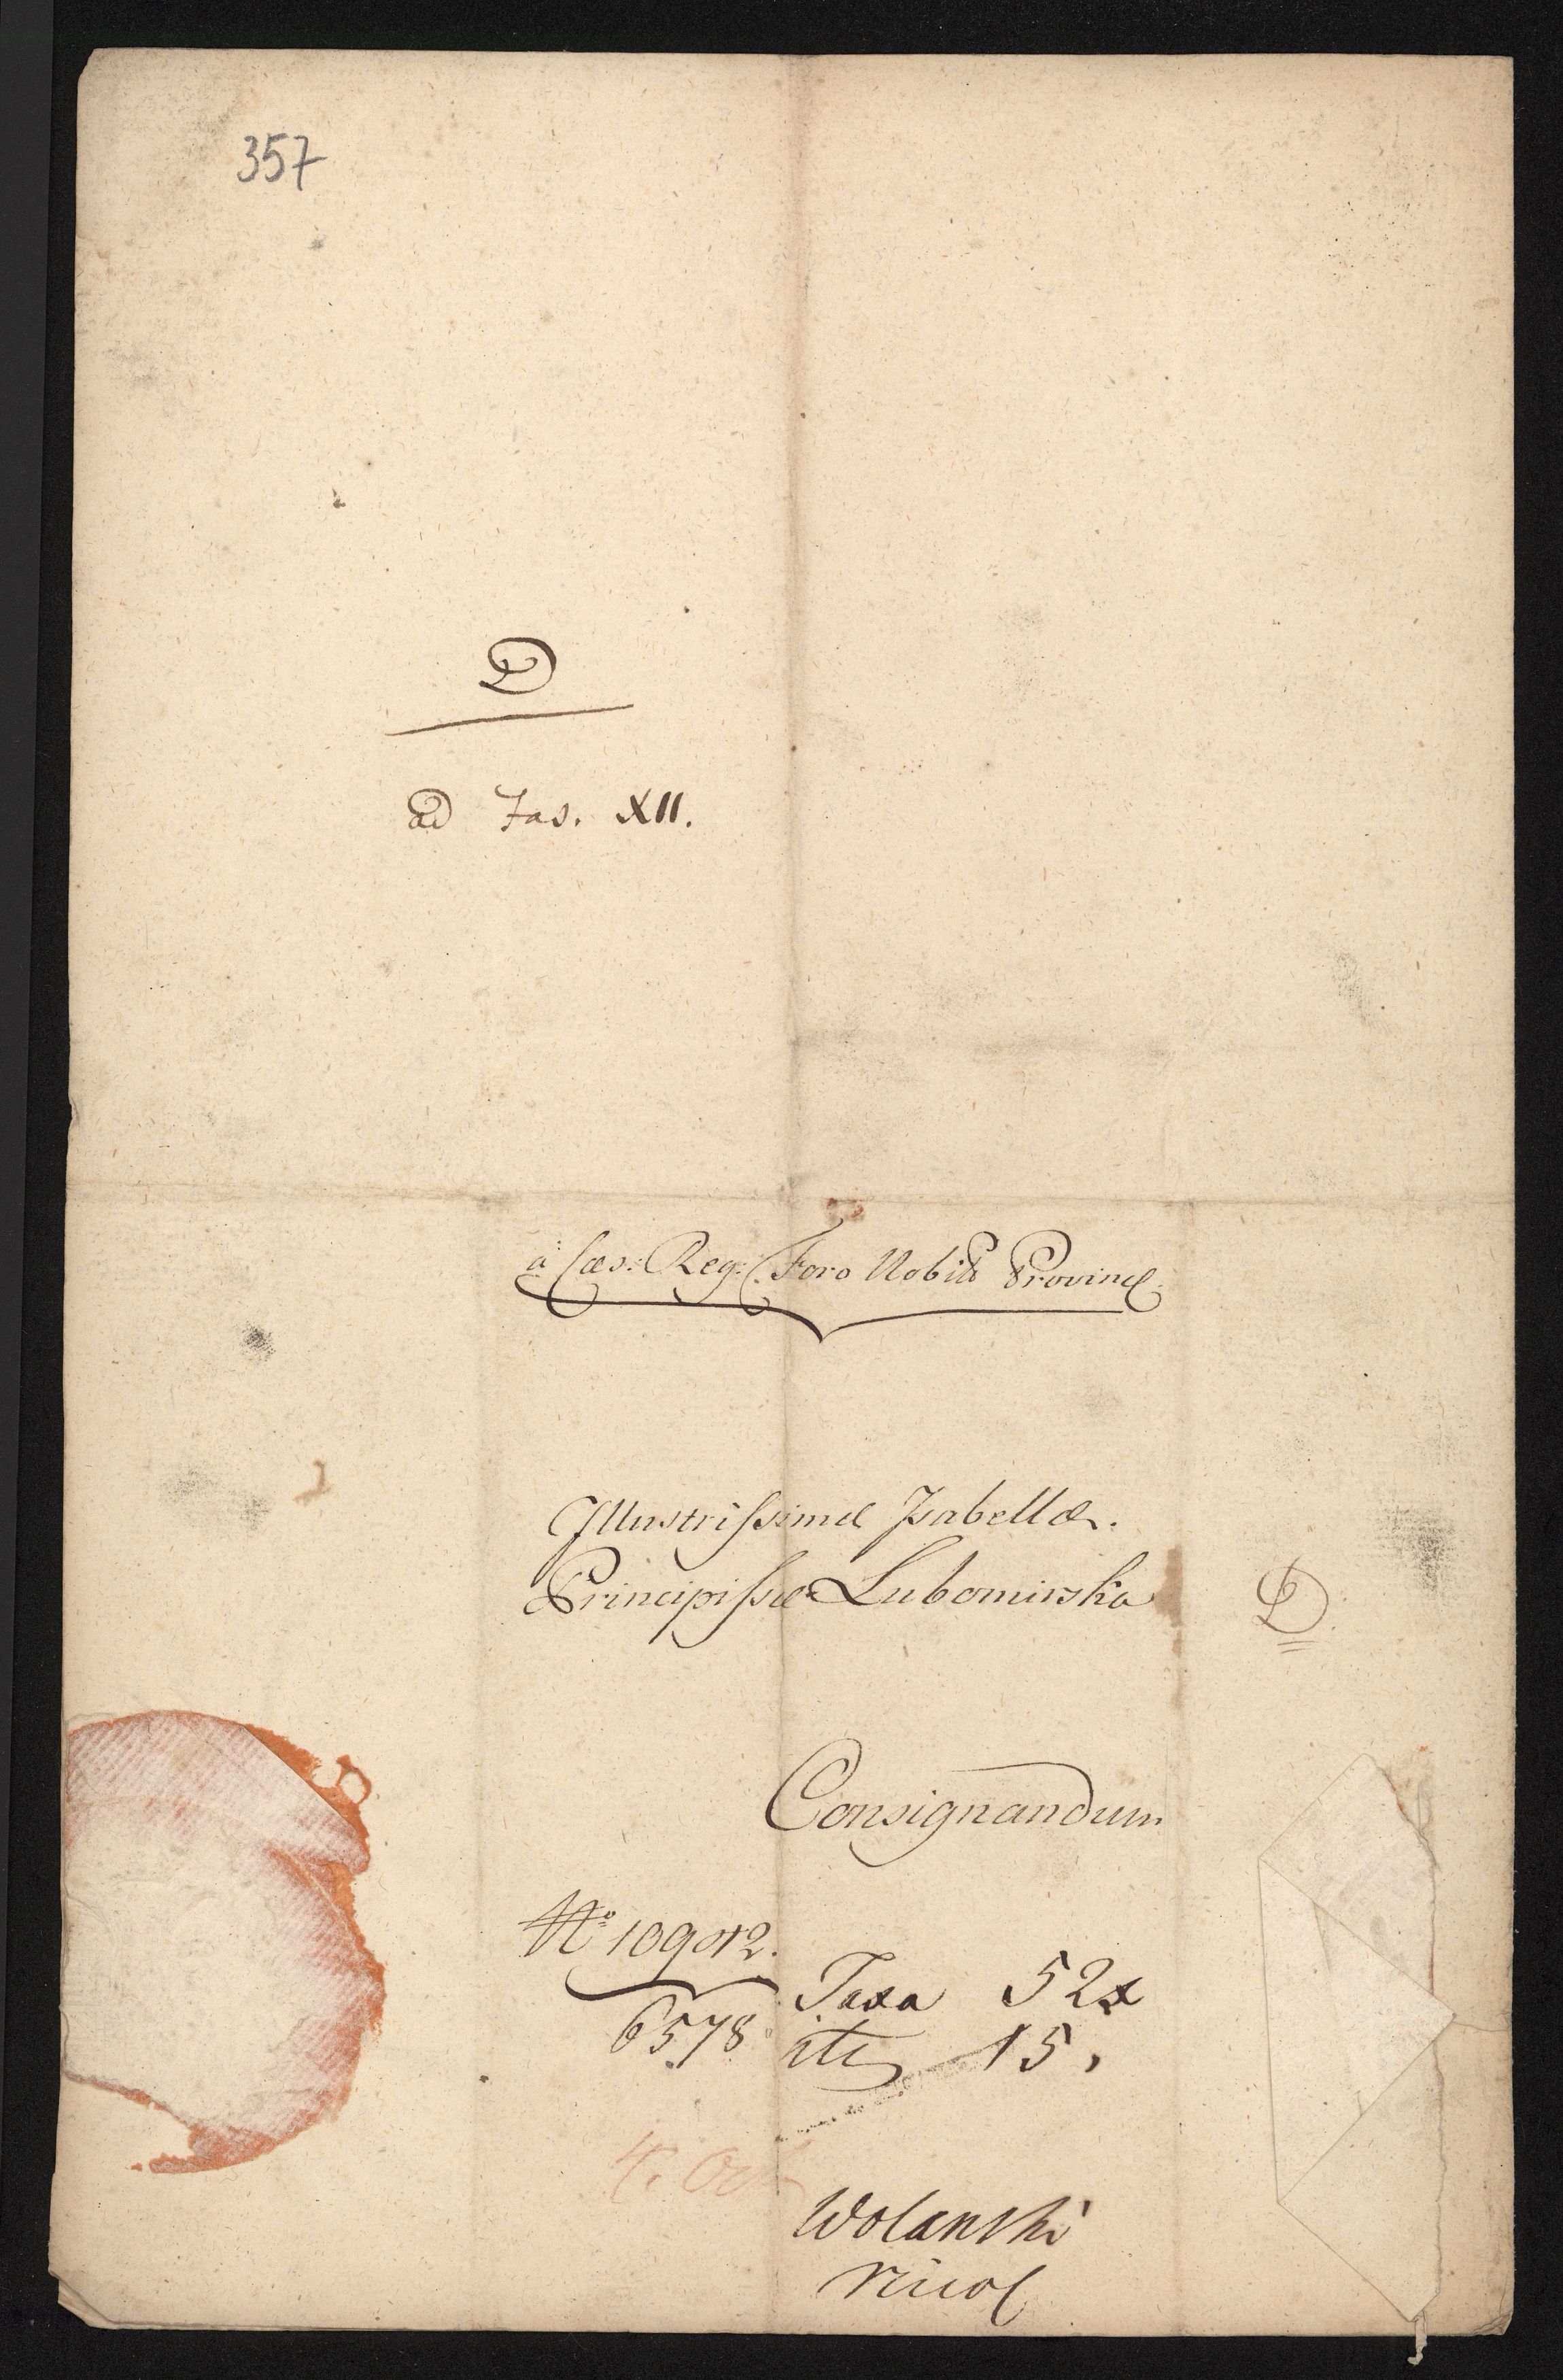 357
D
ad Fas. XII.
à Cæs: Reg: Foro Nobili Provincl:
Illustrissimæ Isabellæ.
Principissæ Lubomirska
D.
Consignandum
No 10912.
6578
Taxa 52x
15,
4. Oct
Wolanski